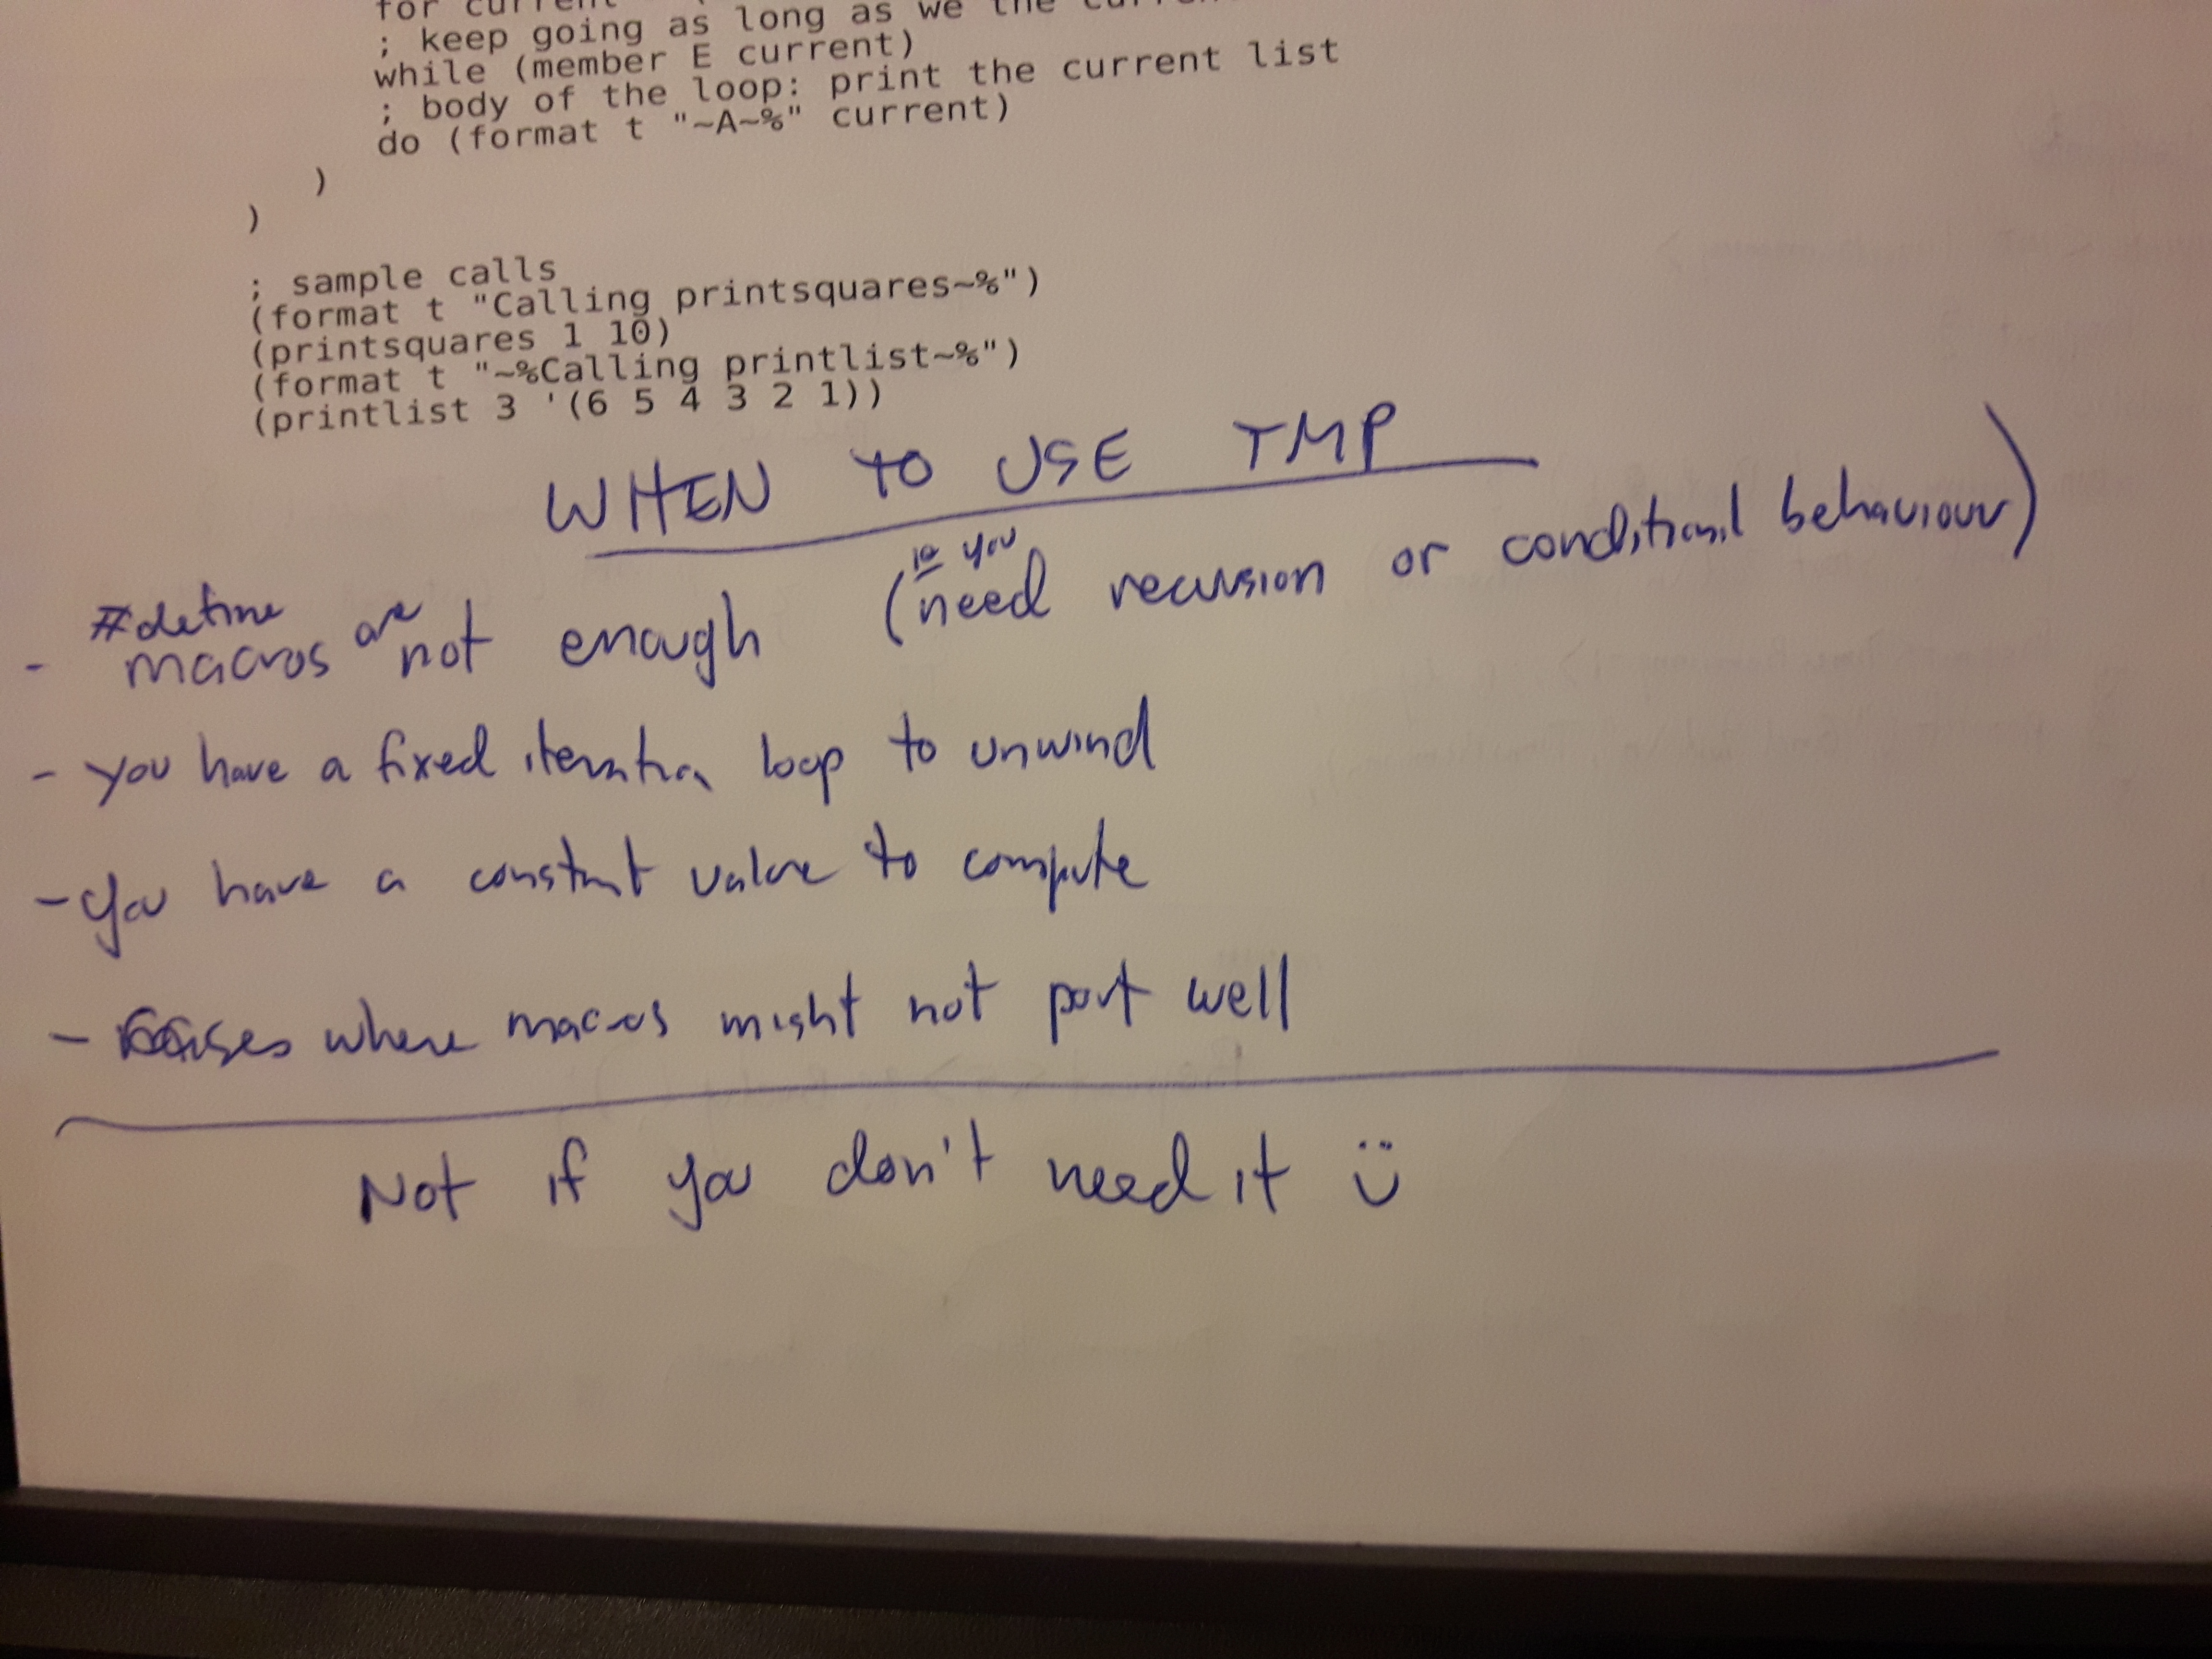 for current
; keep going as long as we the
while (member E current)
; body of the loop: print the current list
do (format t "~A~%" current)
)
)
; sample calls
(format t "Calling printsquares~%")
(printsquares 1 10)
(format t "~%Calling printlist~%")
(printlist 3 '(6 5 4 3 2 1))
WHEN TO USE TMP
- #define macros are not enough (ie you need recursion or conditional behaviour)
- you have a fixed iteration loop to unwind
- you have a constant value to compute
- cases where macros might not port well
Not if you don't need it :)